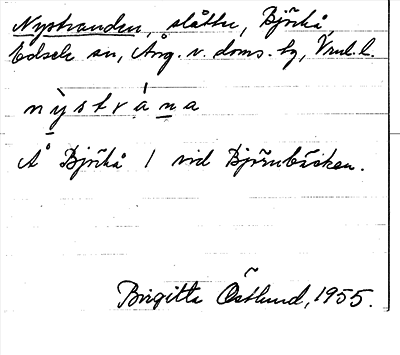 Nystranden, slåtter, Björkå
Edsele sn, Ång. v. doms. hg, Vnrl. l.
nỳstrána
Å Björkå 1 vid Björnbäcken.
Birgitta Östlund, 1955.